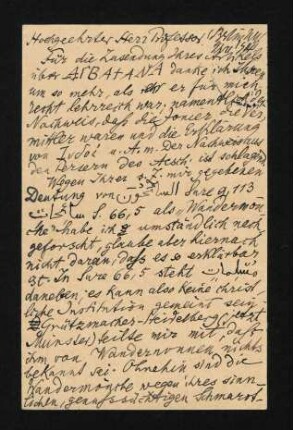 Hochgeehrter Herr Professor,
Für die Zusendung Ihres Artikels
über ΑΓΒΑΤΑΝΑ danke ich Ihnen
um so mehr, als er für mich
recht lehrreich war, namentlich der
Nachweis, daß die Ionier die Ver-
mittler waren und die Erklärung
von u. A. m. Der Nachweis
den Persern des Aesch. ist schlagend
Wegen Ihrer z. Z. mir gegebenen
Deutung von السائحون Sure 9, 113
سائحات S. 66,5 als Wandermön-
che habe ich umständlich nach-
geforscht, glaube aber hiernach
nicht daran, daß es so erklärbar
ist. In Sure 66 5 steht مسلمات
daneben; es kann also keine christ-
liche Institution gemeint sein.
Grützmacher-Heidelberg (jetzt
Münster) teilte mir mit, daß
ihm von Wandernonnen nichts
bekannt sei. Ohnehin sind die
Wandermönche wegen ihres sinn-
lichen, genußsüchtigen Schmarot-